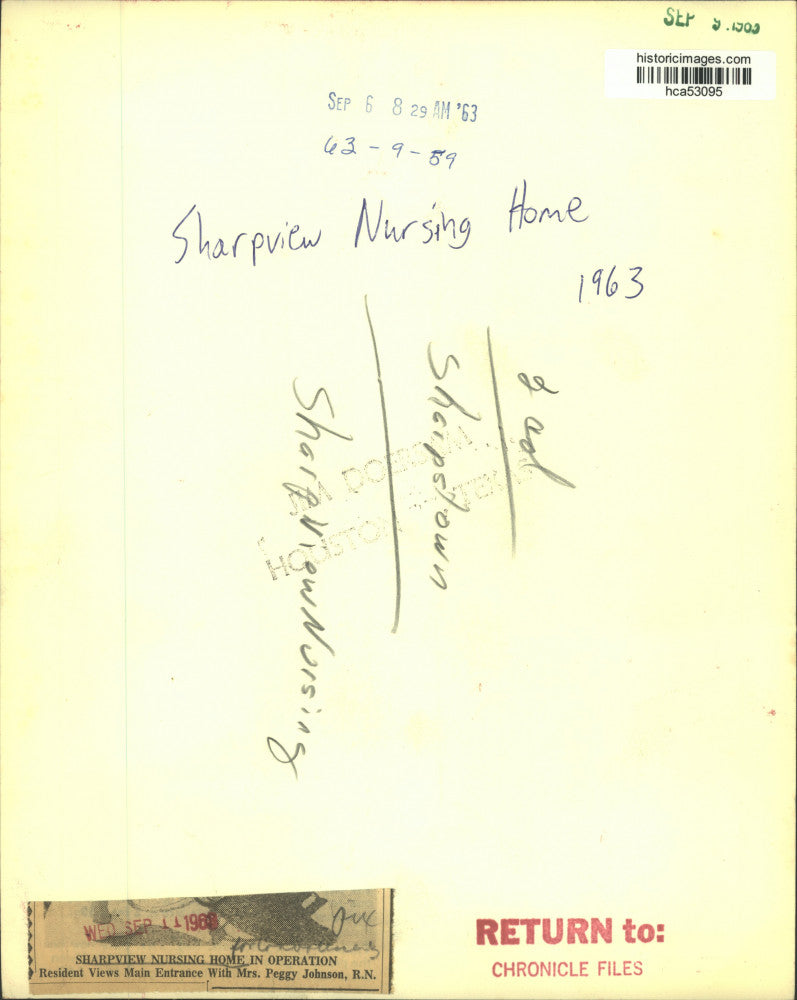 SEP 9. 1963
historicimages.com
hca53095
SEP 6 8 29 AM '63
63-9-59
Sharpview Nursing Home
1963
2 col
Sharpstown
SharpView Nursing
HOUSTON
RETURN to:
CHRONICLE FILES
WED SEP 11 1963
SHARPVIEW NURSING HOME IN OPERATION
Resident Views Main Entrance With Mrs. Peggy Johnson, R.N.